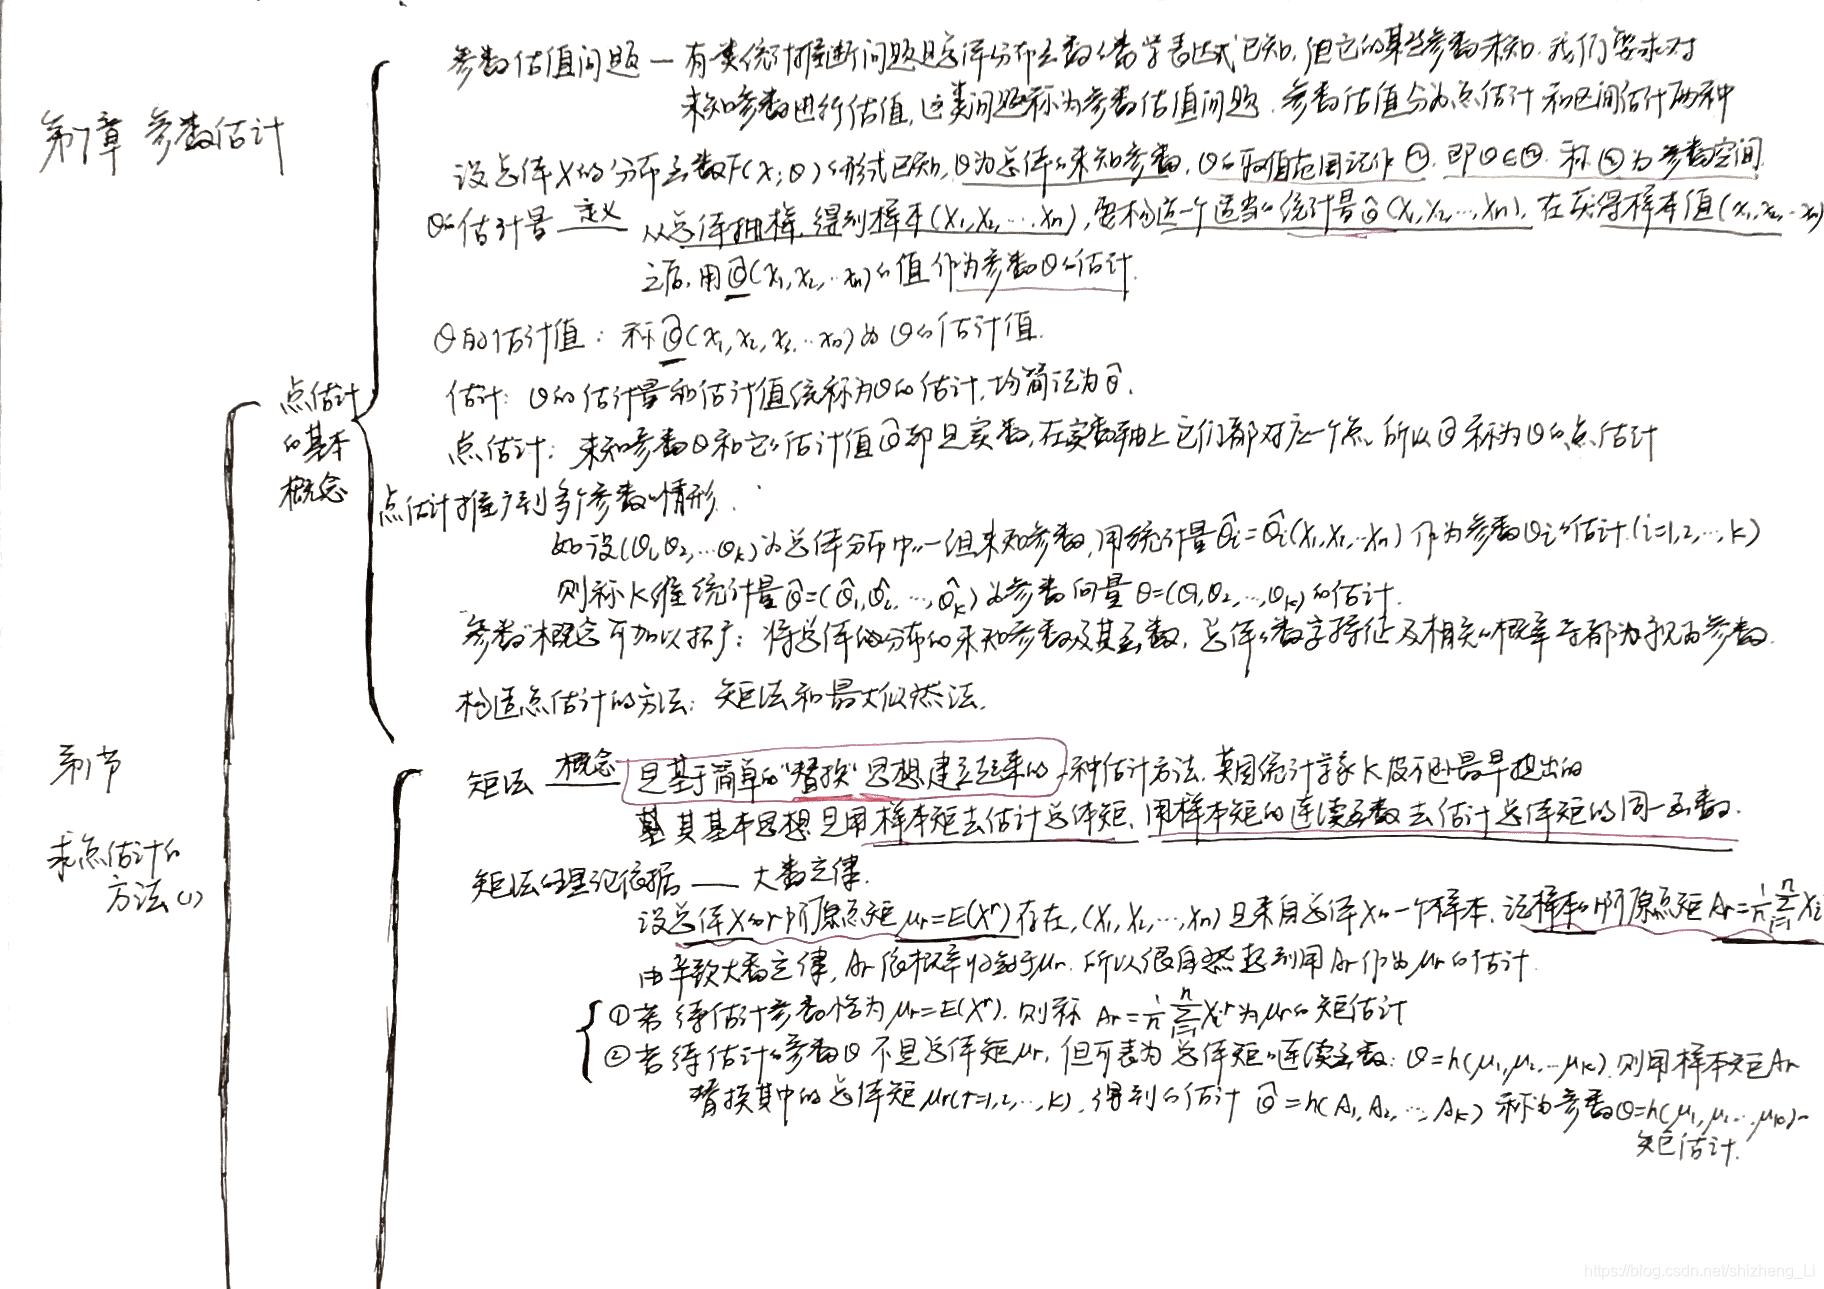 第7章 参数估计
参数估值问题 — 有一类统计推断问题是总体分布函数的数学表达式已知,但它的某些参数未知.我们要求对
未知参数进行估值,这类问题称为参数估值问题.参数估值分为点估计和区间估计两种
设总体X的分布函数F(x;θ)的形式已知,θ为总体的未知参数,θ的取值范围记作Θ.即θ∈Θ.称Θ为参数空间
θ的估计量 定义 从总体抽样,得到样本(X1,X2,…,Xn),要构造一个适当的统计量θ̂(X1,X2,…,Xn),在获得样本值(x1,x2,…xn)
之后,用θ̂(x1,x2,…xn)的值作为参数θ的估计.
θ的估计值:称θ̂(x1,x2,x3,…xn)为θ的估计值.
点估计的基本概念
估计:θ的估计量和估计值统称为θ的估计,均简记为θ̂.
点估计:未知参数θ和它的估计值θ̂都是实数,在实数轴上它们都对应一个点,所以θ̂称为θ的点估计
点估计推广到多个参数的情形.
如设(θ1,θ2,…θk)为总体分布中的一组未知参数,用统计量θ̂i=θ̂i(X1,X2,…Xn)作为参数θi的估计.(i=1,2,…,k)
则称k维统计量θ̂=(θ̂1,θ̂2,…,θ̂k)为参数向量θ=(θ1,θ2,…,θk)的估计.
"参数"概念可加以拓广:将总体的分布的未知参数及其函数,总体的数字特征及相关的概率等都为视为参数.
构造点估计的方法:矩法和最大似然法.
第1节
求点估计的
方法(1)
矩法 概念 是基于简单的"替换"思想建立起来的一种估计方法.英国统计学家K皮尔逊最早提出的
其基本思想是用样本矩去估计总体矩,用样本矩的连续函数去估计总体矩的同一函数.
矩法的理论依据 — 大数定律.
设总体X的r阶原点矩μr=E(X^r)存在,(X1,X2,…,Xn)是来自总体X的一个样本,记样本的r阶原点矩Ar=1/n∑_{i=1}^{n}Xi
由辛钦大数定律,Ar依概率收敛于μr.所以很自然想到用Ar作为μr的估计.
①若待估计参数恰为μr=E(X^r).则称Ar=1/n∑_{i=1}^{n}Xi^r为μr的矩估计
②若待估计的参数θ不是总体矩μr,但可表为总体矩的连续函数:θ=h(μ1,μ2,…μk).则用样本矩Ar
替换其中的总体矩μr(r=1,2,…,k),得到的估计θ̂=h(A1,A2,…,Ak)称为参数θ=h(μ1,μ2…,μk)的
矩估计.
https://blog.csdn.net/shizheng_Li